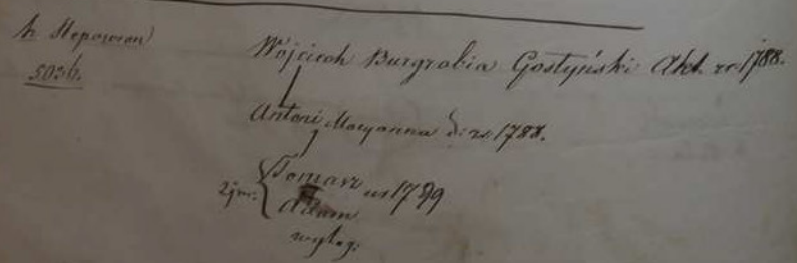 h. Slepowron
Wojciech Burgrabia Gostyński Akt. r. 1788.
Antoni Maryanna ś: r. 1788.
2 im: Tomasz ur 1789
Adam
wyleg: